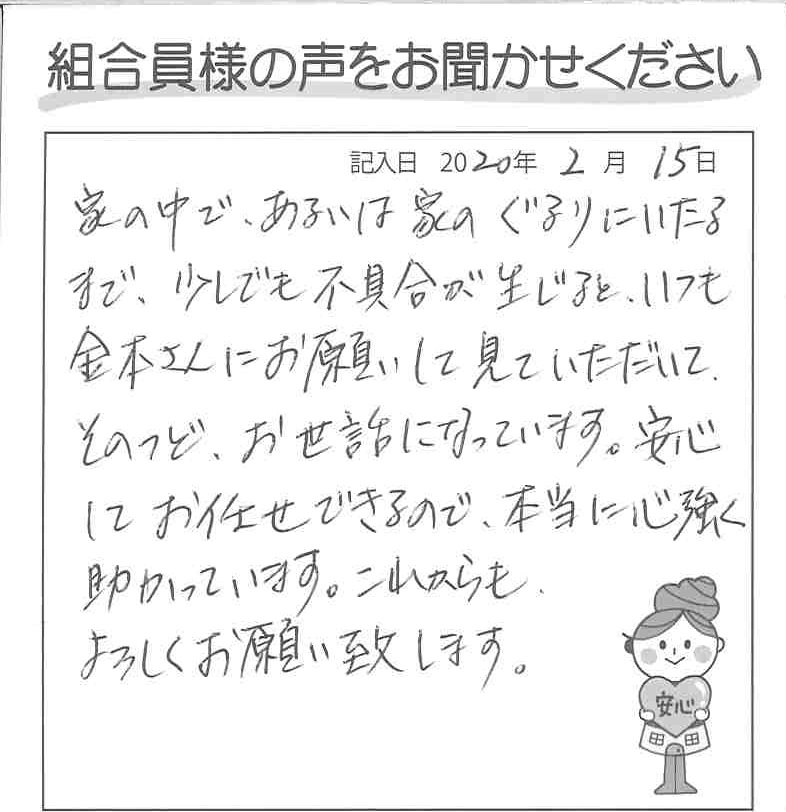 組合員様の声をお聞かせください
記入日 2020年 2月 15日
家の中で、あるいは家のぐるりにいたる
まで、少しでも不具合が生じると、いつも
金本さんにお願いして見ていただいて、
そのつど、お世話になっています。安心
してお任せできるので、本当に心強く
助かっています。これからも、
よろしくお願い致します。
安心